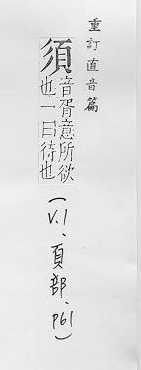 重訂直音篇
須
音胥意所欲
也一曰待也
(V.1、頁部、P61)